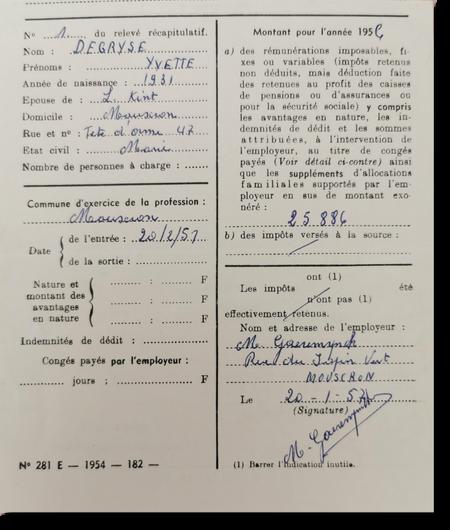 Nº 1. du relevé récapitulatif.
Nom : DEGRYSE
Prénoms : YVETTE
Année de naissance : 1931
Epouse de : L. Kint
Domicile : Mouscron
Rue et nº : Tete d'orme 47
Etat civil :
Nombre de personnes à charge :
Commune d'exercice de la profession :
Mouscron
Date
de l'entrée : 20/2/57
de la sortie :
Nature et montant des avantages en nature
: F
: F
: F
Indemnités de dédit :
Congés payés par l'employeur :
jours ; F
Nº 281 E — 1954 — 182 —
Montant pour l'année 195
a) des rémunérations imposables, fi-
xes ou variables (impôts retenus
non déduits, mais déduction faite
des retenues au profit des caisses
de pensions ou d'assurances ou
pour la sécurité sociale) y compris
les avantages en nature, les in-
demnités de dédit et les sommes
attribuées, à l'intervention de
l'employeur, au titre de congés
payés (Voir détail ci-contre) ainsi
que les suppléments d'allocations
familiales supportés par l'em-
ployeur en sus de montant exo-
néré :
25.886
b) des impôts versés à la source :
ont (1)
Les impôts été
n'ont pas (1)
effectivement retenus.
Nom et adresse de l'employeur :
Rue du Sapin Vert
MOUSCRON
Le 20 - 1 - 57
(Signature)
(1) Barrer l'indication inutile.